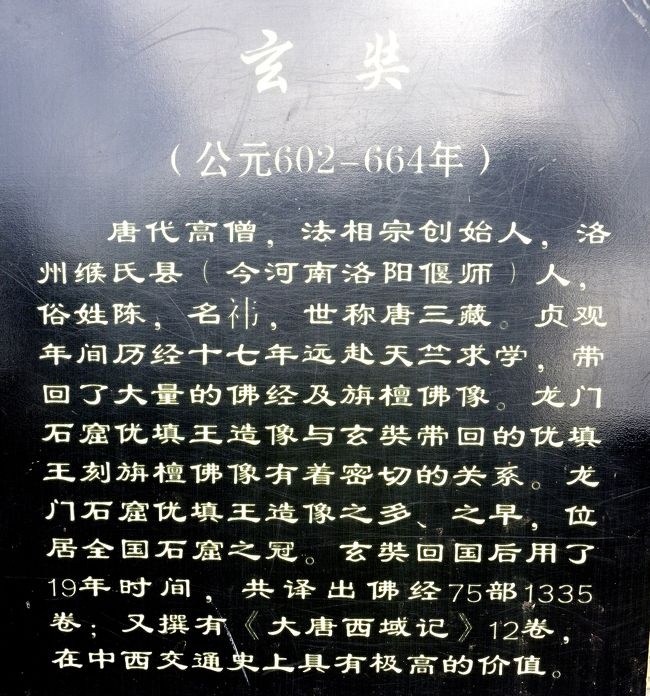 玄奘
(公元602-664年)
唐代高僧，法相宗创始人，洛
州缑氏县(今河南洛阳偃师)人，
俗姓陈，名祎，世称唐三藏。贞观
年间历经十七年远赴天竺求学，带
回了大量的佛经及旃檀佛像。龙门
石窟优填王造像与玄奘带回的优填
王刻旃檀佛像有着密切的关系。龙
门石窟优填王造像之多、之早，位
居全国石窟之冠。玄奘回国后用了
19年时间，共译出佛经75部1335
卷；又撰有《大唐西域记》12卷，
在中西交通史上具有极高的价值。